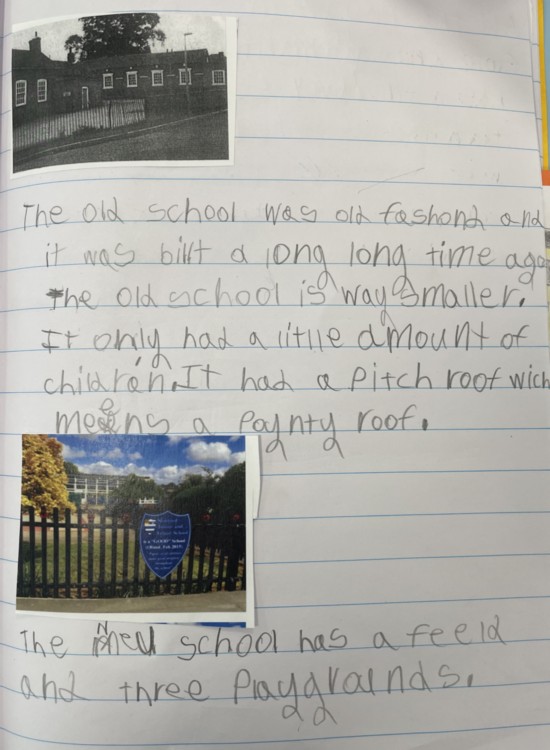 The old school was old fashond and
it was billt a long long time ago
the old school is way smaller.
It only had a little amount of
children. It had a pitch roof wich
meens a poynty roof.
is a "GOOD" School
Ofsted, Feb 2019
The New school has a feeld
and three playgrounds.